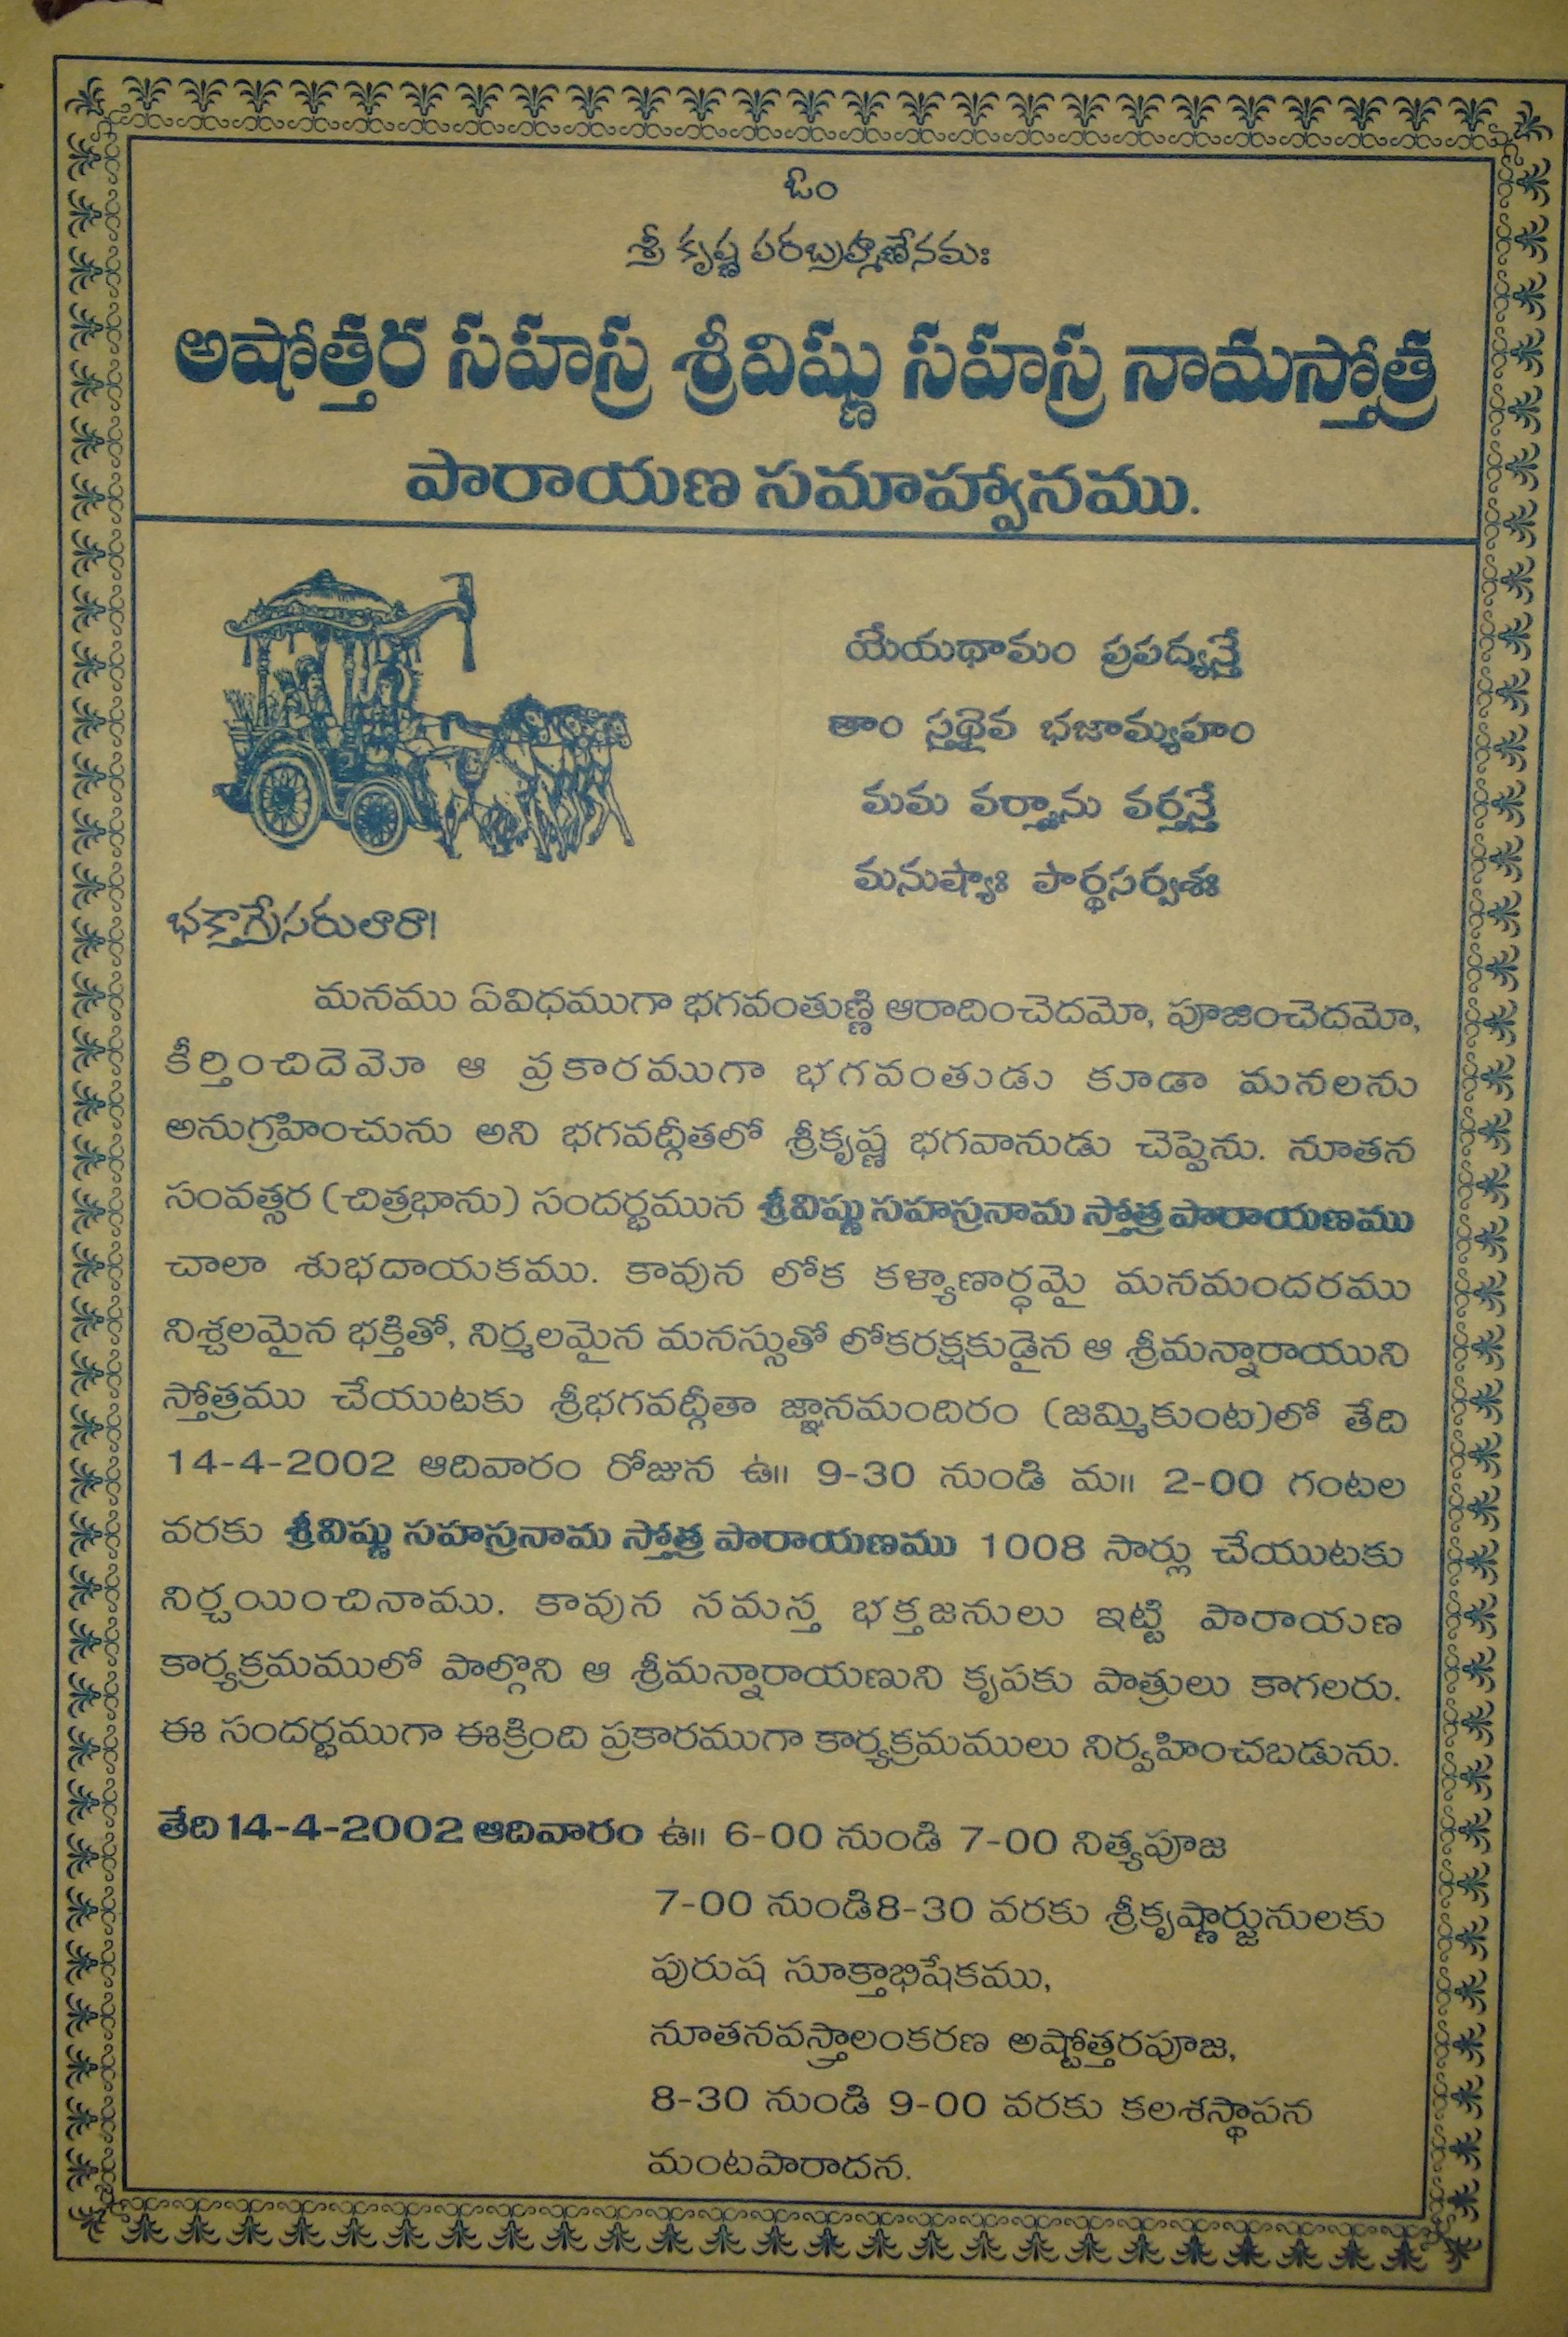 ఓం
శ్రీ కృష్ణ పరబ్రహ్మణేనమః
అషోత్తర సహస్ర శ్రీవిష్ణు సహస్ర నామస్తోత్ర
పారాయణ సమాహ్వానము.
యేయథామం ప్రపద్యన్తే
తాం స్తథైవ భజామ్యహం
మమ వర్త్మాను వర్తన్తే
మనుష్యాః పార్థసర్వశః
భక్తాగ్రేసరులారా!
మనము ఏవిధముగా భగవంతుణ్ణి ఆరాదించెదమో, పూజించెదమో,
కీర్తించిదెమో ఆ ప్రకారముగా భగవంతుడు కూడా మనలను
అనుగ్రహించును అని భగవద్గీతలో శ్రీకృష్ణ భగవానుడు చెప్పెను. నూతన
సంవత్సర (చిత్రభాను) సందర్భమున శ్రీవిష్ణు సహస్రనామ స్తోత్ర పారాయణము
చాలా శుభదాయకము. కావున లోక కళ్యాణార్ధమై మనమందరము
నిశ్చలమైన భక్తితో, నిర్మలమైన మనస్సుతో లోకరక్షకుడైన ఆ శ్రీమన్నారాయుని
స్తోత్రము చేయుటకు శ్రీభగవద్గీతా జ్ఞానమందిరం (జమ్మికుంట)లో తేది
14-4-2002 ఆదివారం రోజున ఉ॥ 9-30 నుండి మ॥ 2-00 గంటల
వరకు శ్రీవిష్ణు సహస్రనామ స్తోత్ర పారాయణము 1008 సార్లు చేయుటకు
నిర్ణయించినాము. కావున సమస్త భక్తజనులు ఇట్టి పారాయణ
కార్యక్రమములో పాల్గొని ఆ శ్రీమన్నారాయణుని కృపకు పాత్రులు కాగలరు.
ఈ సందర్భముగా ఈక్రింది ప్రకారముగా కార్యక్రమములు నిర్వహించబడును.
తేది 14-4-2002 ఆదివారం ఉ॥ 6-00 నుండి 7-00 నిత్యపూజ
7-00 నుండి8-30 వరకు శ్రీకృష్ణార్జునులకు
పురుష సూక్తాభిషేకము,
నూతనవస్త్రాలంకరణ అష్టోత్తరపూజ,
8-30 నుండి 9-00 వరకు కలశస్థాపన
మంటపారాదన.